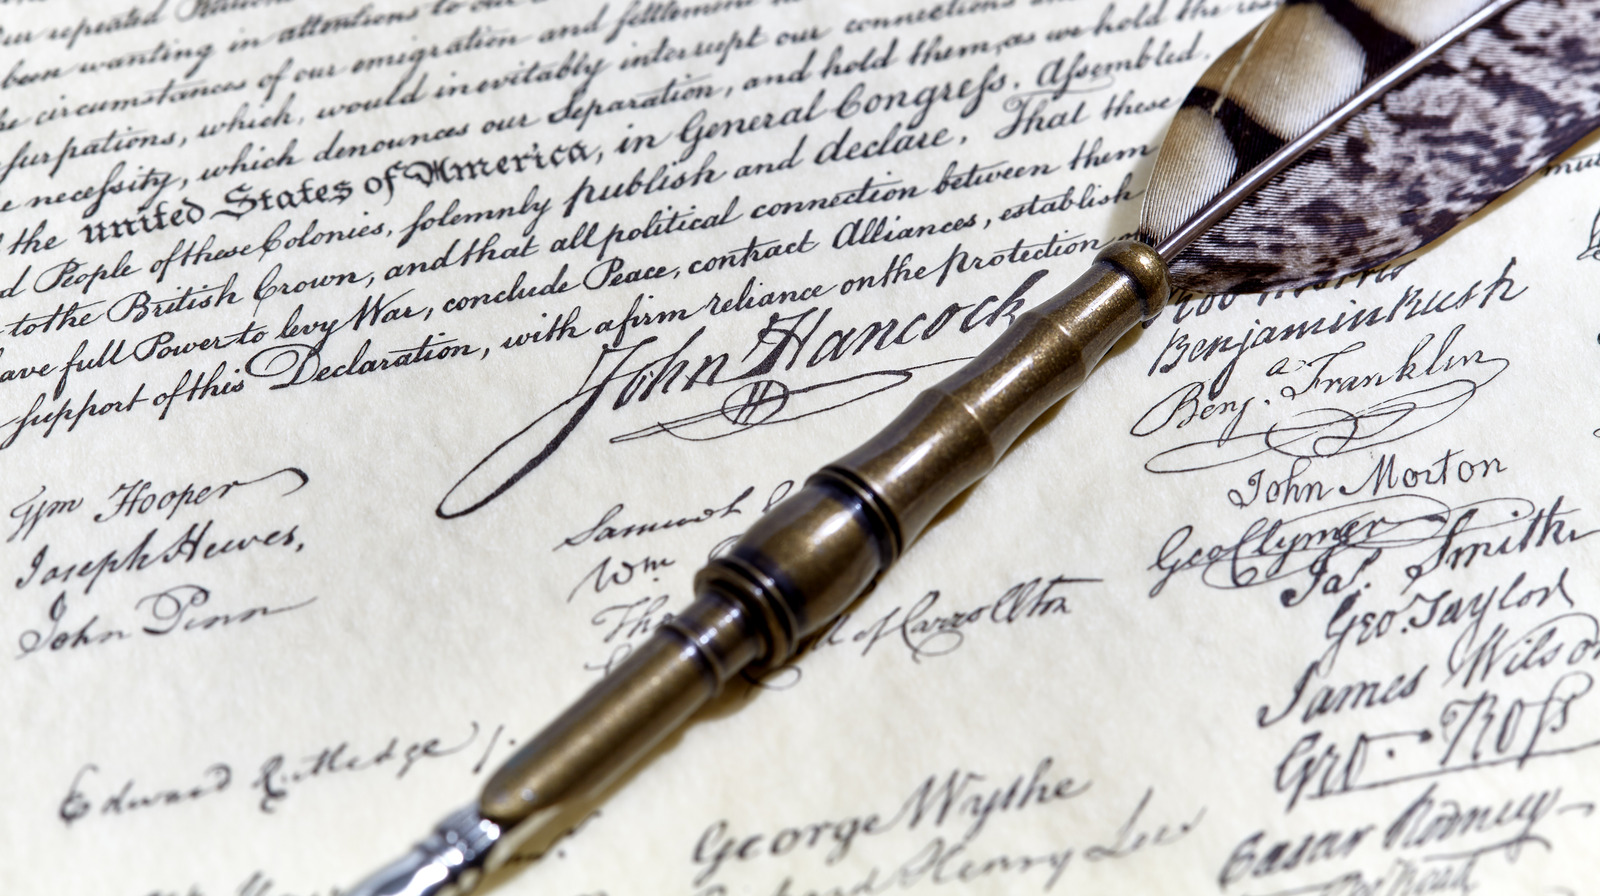 our repeated
been wanting in attentions to our
circumstances of our emigration and settlement
which, would inevitably interrupt our connections
necessity, which denounces our Separation, and hold them, as we hold the
the united States of America, in General Congress, Assembled,
People of these Colonies, solemnly publish and declare, That these
to the British Crown, and that all political connection between them
have full Power to levy War, conclude Peace, contract Alliances, establish
support of this Declaration, with a firm reliance on the protection
John Hancock
Wm Hooper
Joseph Hewes,
John Penn
Edward Rutledge /.
Samuel
Wm
of Carrollton
George Wythe
Henry Lee
Rob Morris
Benjamin Rush
Benj. Franklin
John Morton
Geo Clymer
Jas. Smith
Geo. Taylor
James Wilson
Geo. Ross
Caesar Rodney